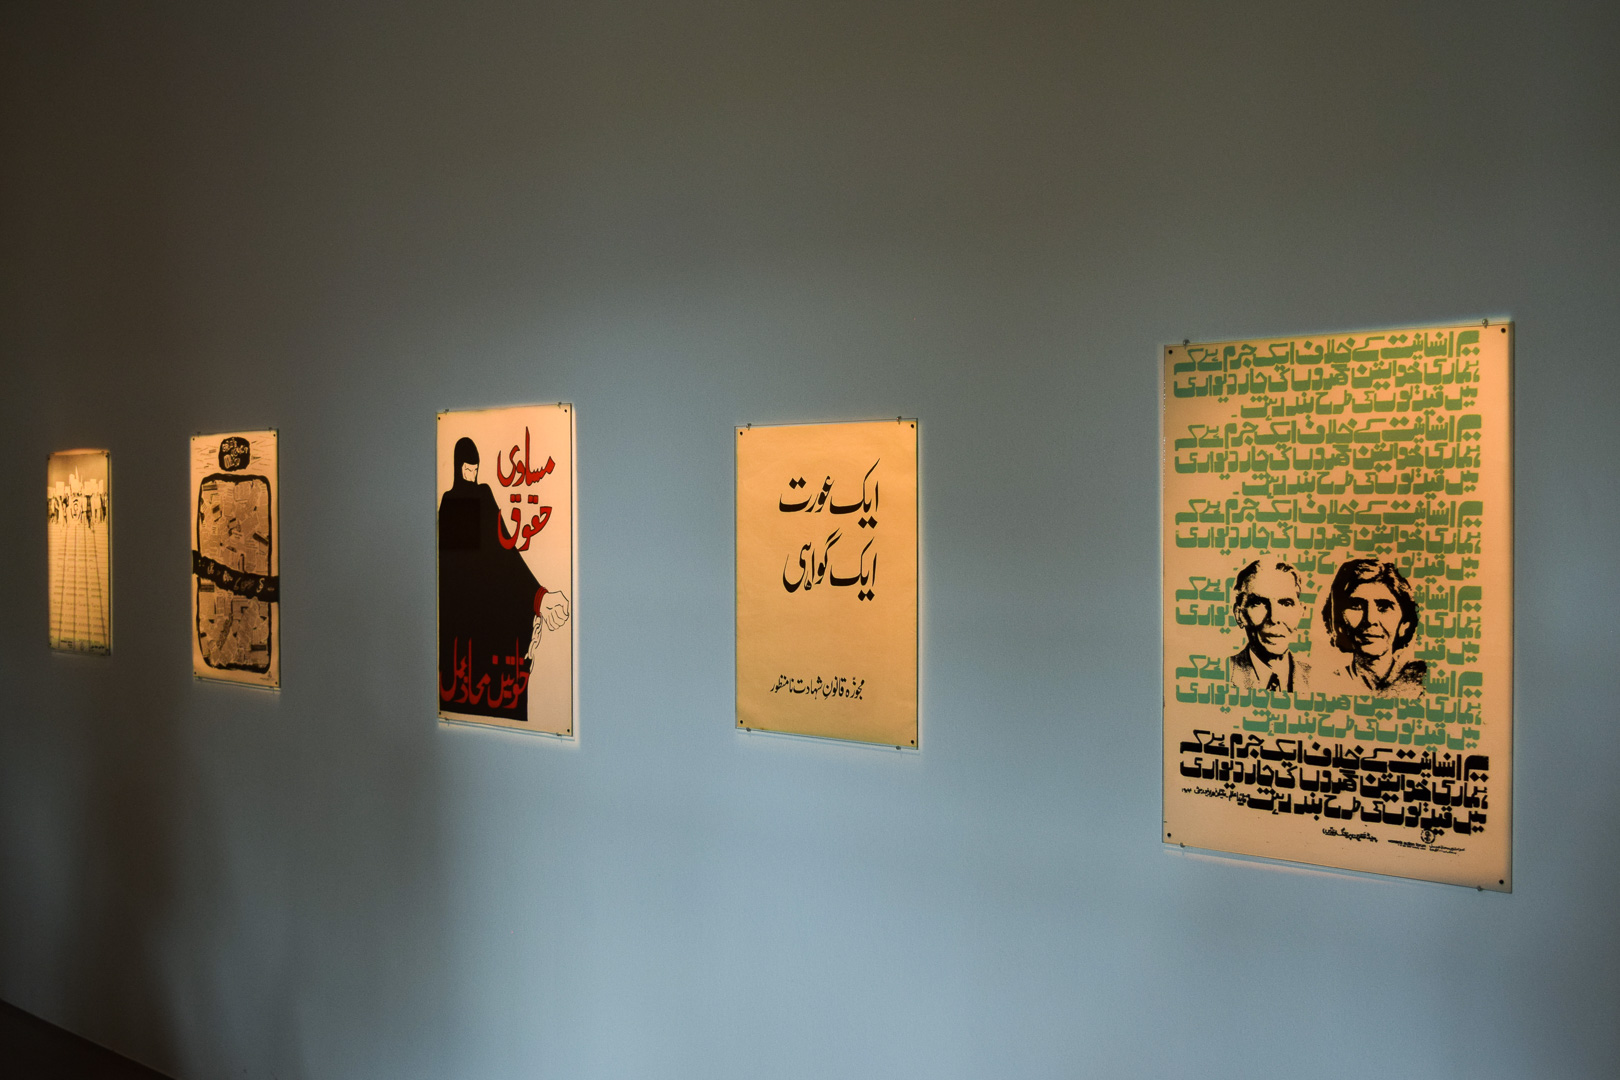 مساوی
حقوق
خواتین محاذ عمل
ایک عورت
ایک گواہی
مجوزہ قانونِ شہادت نامنظور
یہ انسانیت کے خلاف ایک جرم ہے کہ
ہماری خواتین گھروں کی چار دیواری
میں قیدیوں کی طرح بند رہیں۔
یہ انسانیت کے خلاف ایک جرم ہے کہ
ہماری خواتین گھروں کی چار دیواری
میں قیدیوں کی طرح بند رہیں۔
یہ انسانیت کے خلاف ایک جرم ہے کہ
ہماری خواتین گھروں کی چار دیواری
میں قیدیوں کی طرح بند
یہ ہے کہ
ہماری دیواری
میں
یہ ہے کہ
ہماری خواتین گھروں کی چار دیواری
میں قیدیوں کی طرح بند رہیں۔
یہ انسانیت کے خلاف ایک جرم ہے کہ
ہماری خواتین گھروں کی چار دیواری
میں قیدیوں کی طرح بند رہیں۔